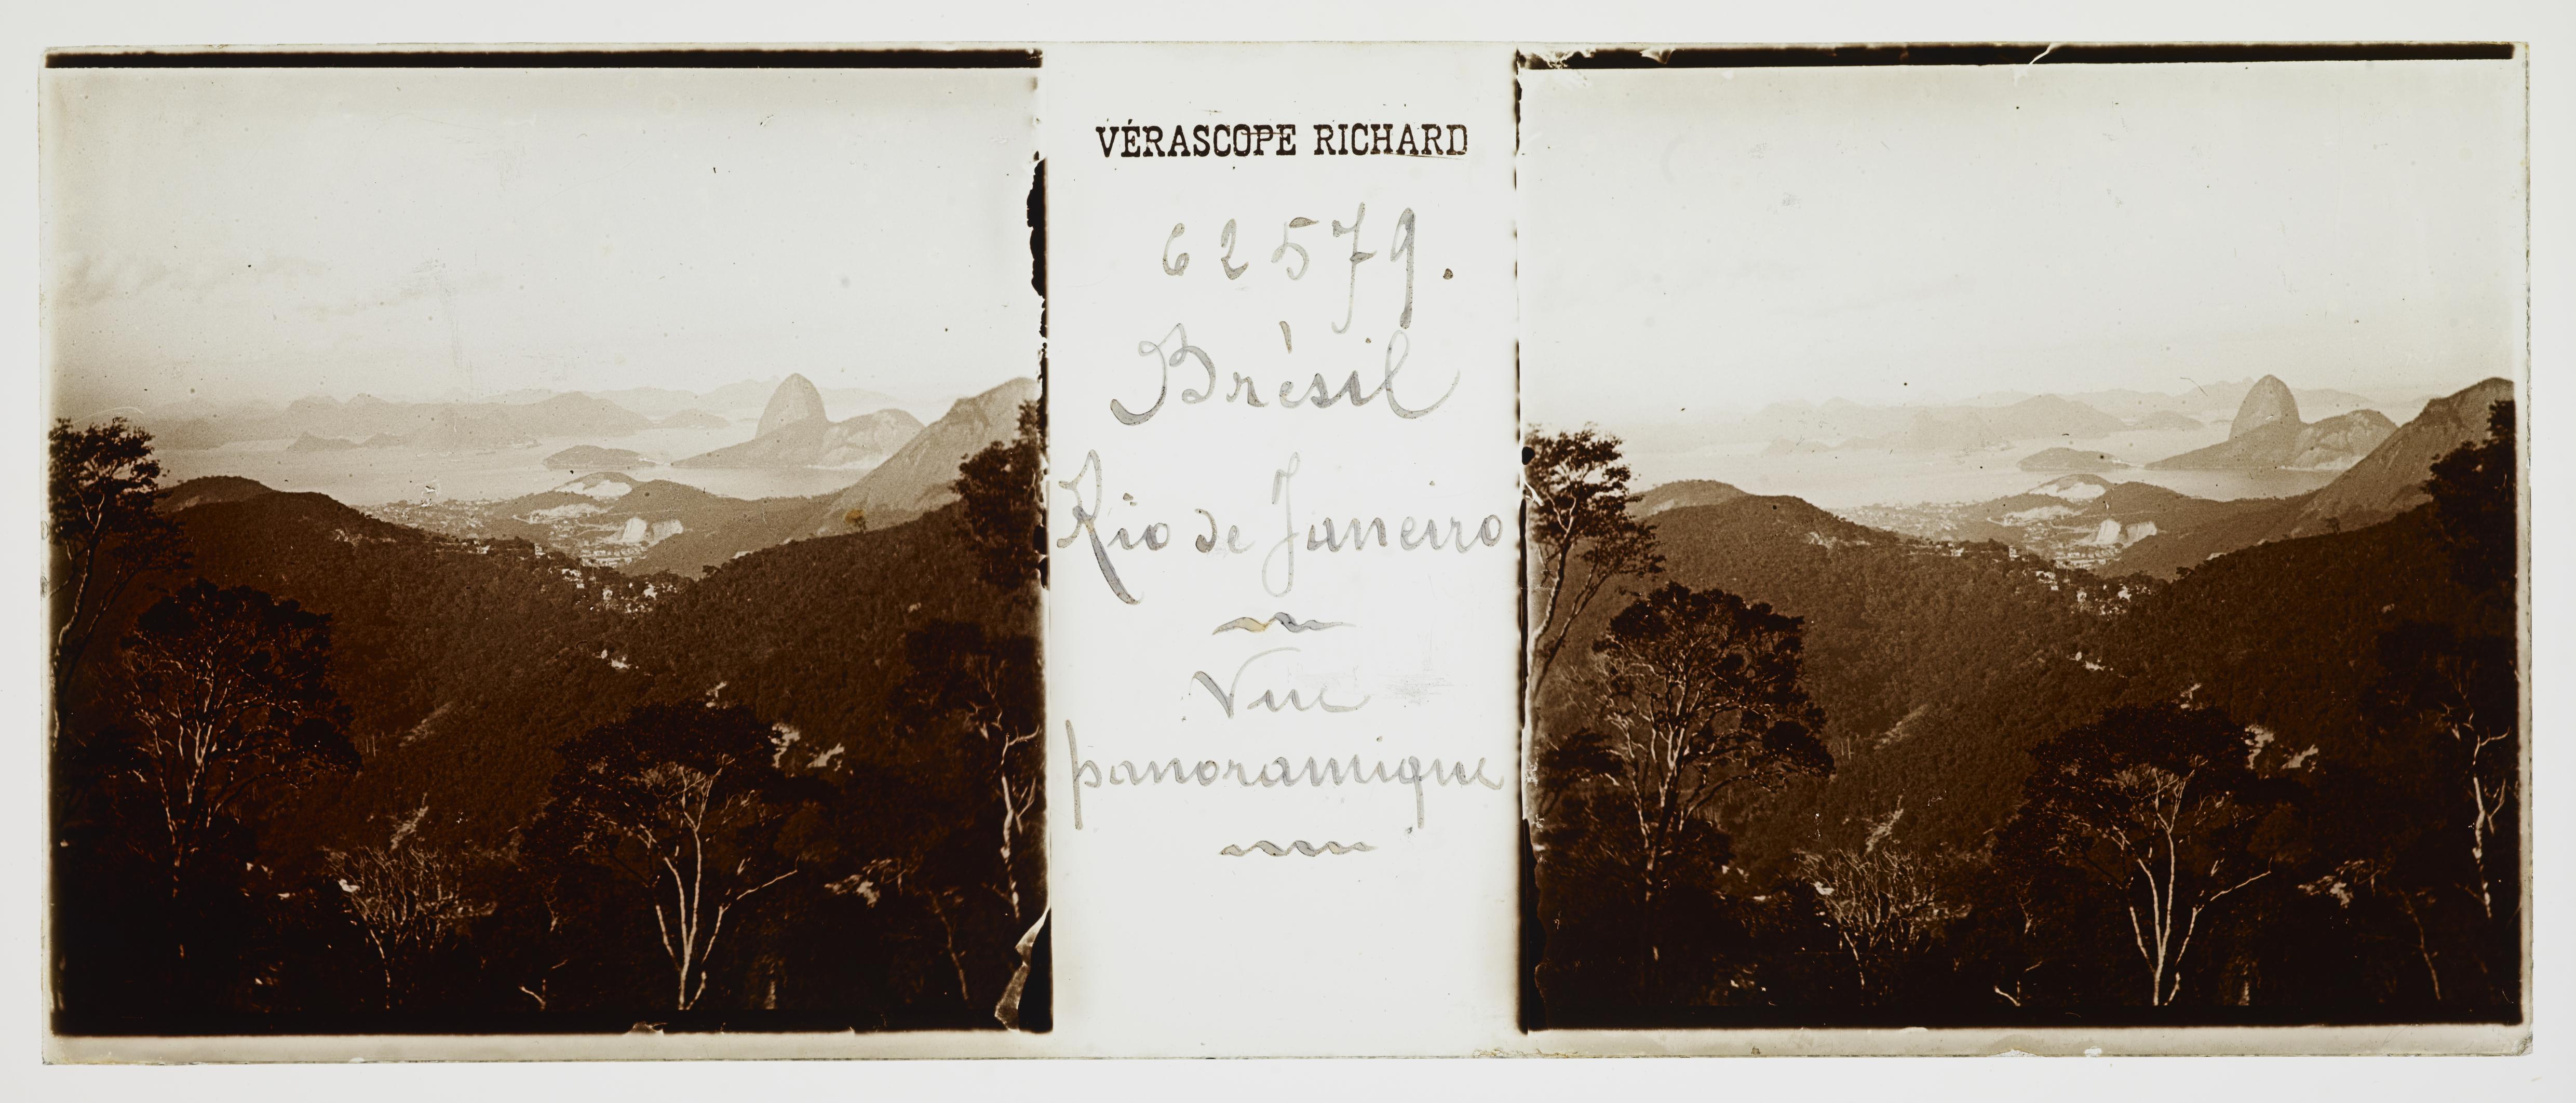 VÉRASCOPE RICHARD
62579.
Brèsil
Rio de Janeiro
Vue
panoramique